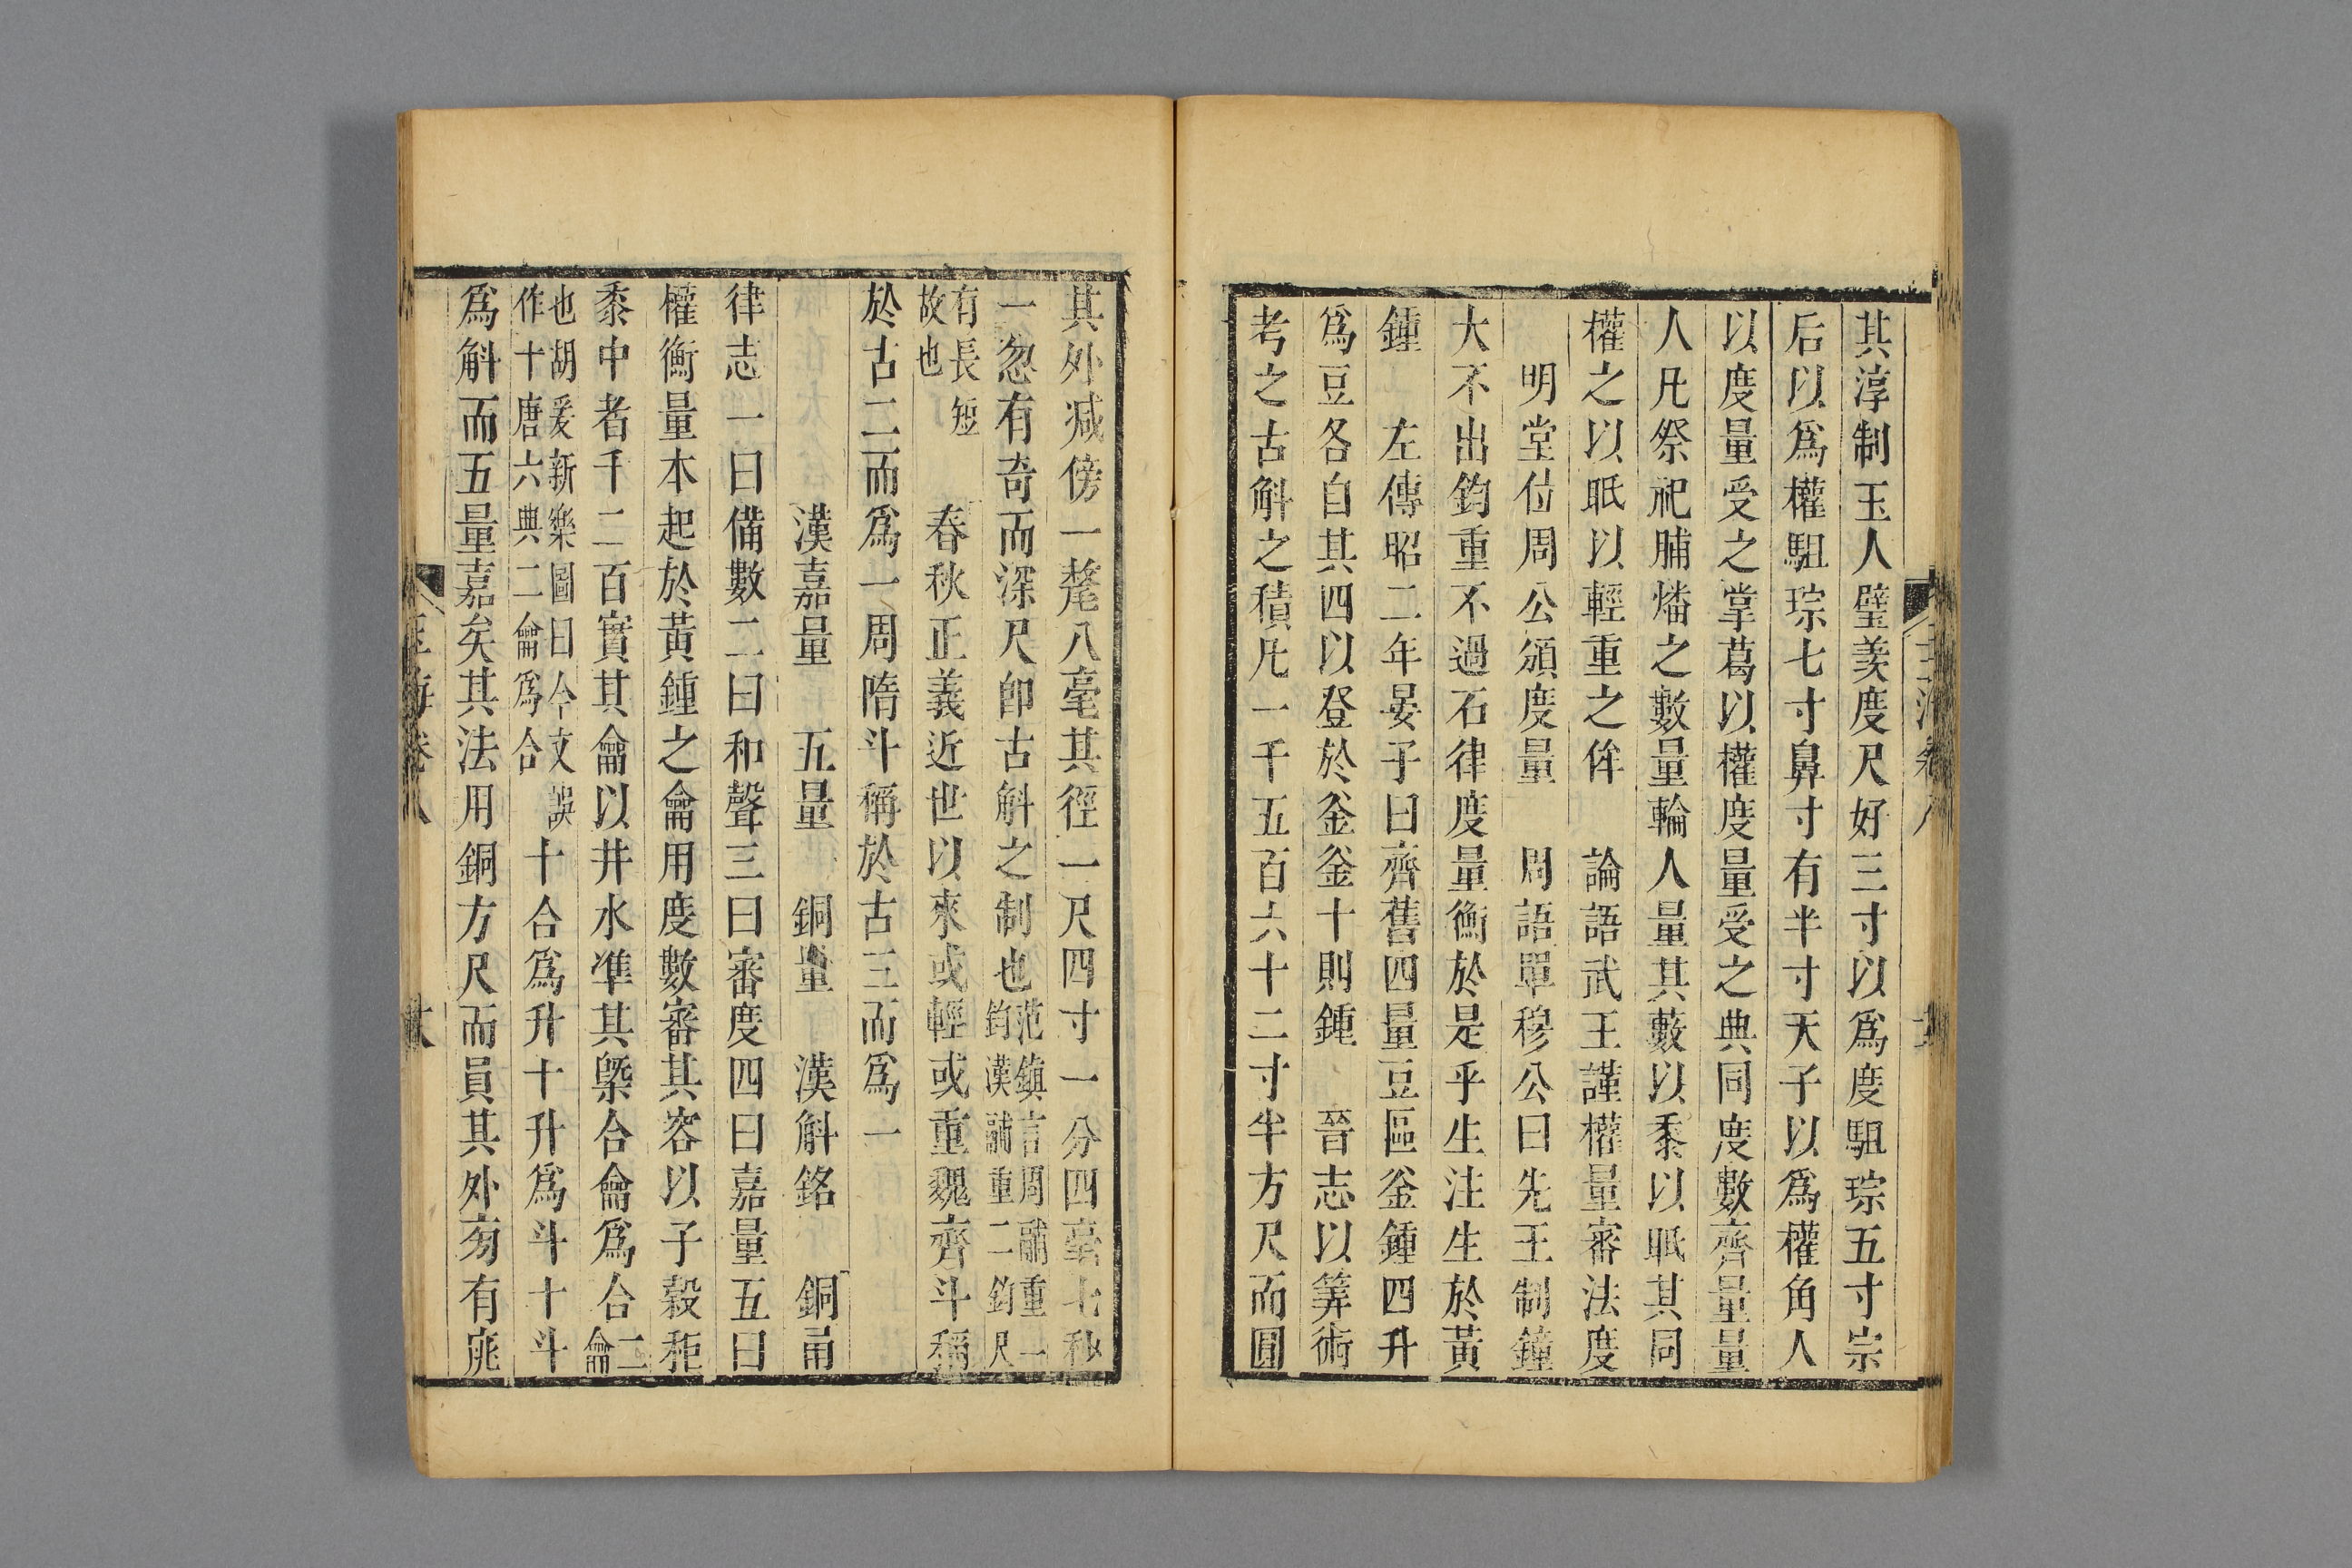 其淳制玉人璧羡度尺好三寸以爲度駔琮五寸宗
后以爲權駔琮七寸鼻寸有半寸天子以爲權角人
以度量受之掌葛以權度量受之典同度數齊量量
人凡祭祀脯燔之數量輪人量其藪以黍以眡其同
權之以眡以輕重之侔　論語武王謹權量審法度
明堂位周公頒度量　周語單穆公曰先王制鐘
大不出鈞重不過石律度量衡於是乎生注生於黃
鍾　左傳昭二年晏子曰齊舊四量豆區釜鍾四升
爲豆各自其四以登於釜釜十則鍾　晉志以筭術
考之古斛之積凡一千五百六十二寸半方尺而圓
其外减傍一氂八毫其徑一尺四寸一分四毫七秒
一忽有奇而深尺卽古斛之制也范鎮言周鬴重一鈞漢鬴重二鈞尺
有長短故也　春秋正義近世以來或輕或重魏齊斗稱
於古二而爲一周隋斗稱於古三而爲一
漢嘉量　五量　銅量　漢斛銘　銅甬
律志一曰備數二曰和聲三曰審度四曰嘉量五曰
權衡量本起於黃鍾之龠用度數審其容以子穀秬
黍中者千二百實其龠以井水準其槩合龠爲合二龠
也胡爰新樂圖曰今文誤作十唐六典二龠爲合十合爲升十升爲斗十斗
爲斛而五量嘉矣其法用銅方尺而員其外旁有庣
玉海卷八